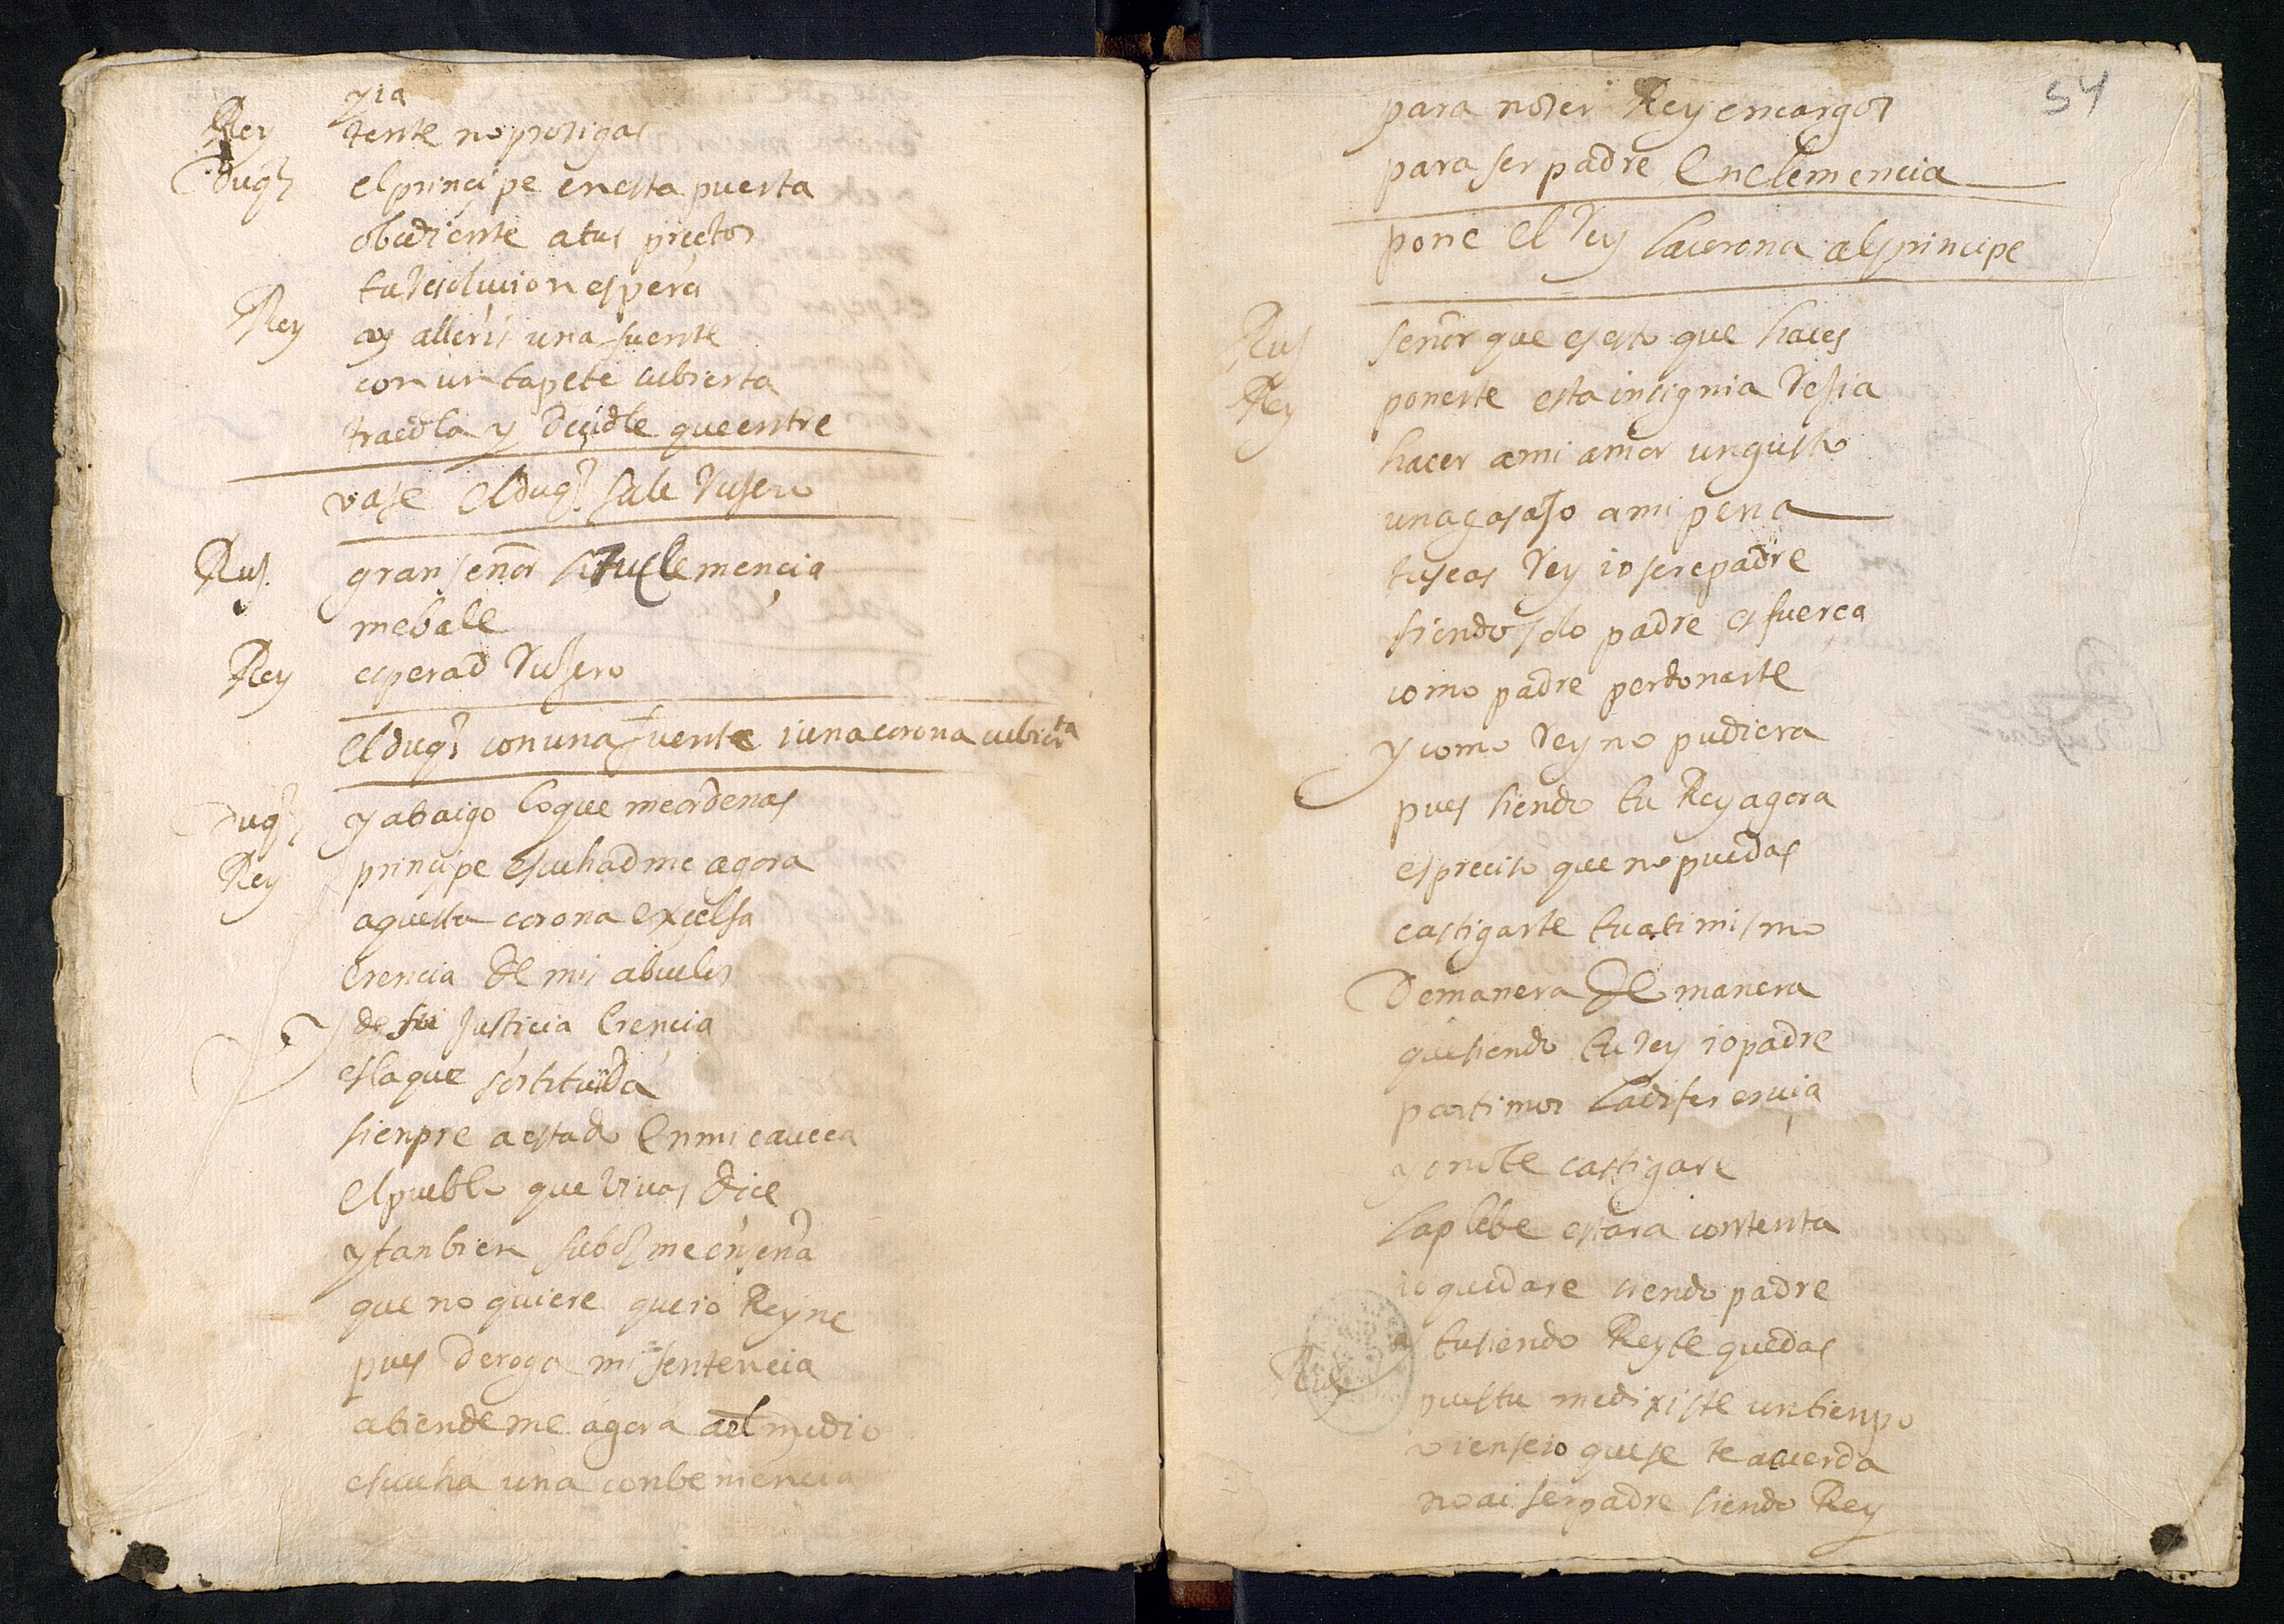 y ia
Rey tente no prosigas
Duq͂ el principe en esta puerta
obediente a tus preçetos
tu resolucion espera
Rey ay alleris una fuente
con un tapete cubierta
traedla y deçidle que entre
vase el duq͂ sale rujero
Ruj. gran señor si tu clemençia
me bale
Rey esperad rujero
el duq͂ con una fuente i una corona cubierta
Duq͂ y a traigo lo que me ordenas
Rey prinçipe escuhadme agora
aquesta corona exçelsa
erencia de mis abuelos
de su justiçia erencia
es la que sostituida
sienpre a estado en mi caveça
el pueblo que vivas dice
y tanbien me enseña
que no quiere que io Reyne
pues deroga mi sentencia
atiende me agora al medio
escuha una conbeniencia
54
para no ser Rey en cargos
para ser padre en clemencia
pone el rey la corona al principe
Ruj señor que es esto que haces
Rey ponerte esta insignia regia
hacer a mi amor un gusto
un agasajo a mi pena
tu seas rey io sere padre
siendo solo padre es fuerça
como padre perdonarte
y como rey no pudiera
pues siendo tu Rey agora
es preciso que no puedas
castigarte tu a ti mismo
de manera de manera
que siendo tu rey io padre
partimos la diferençia
yo no te castigare
la plebe estara contenta
io quedare siendo padre
y tu siendo Rey te quedas
Ruj pues tu me dixiste un tienpo
vien se io que se te acuerda
no ai ser padre siendo Rey